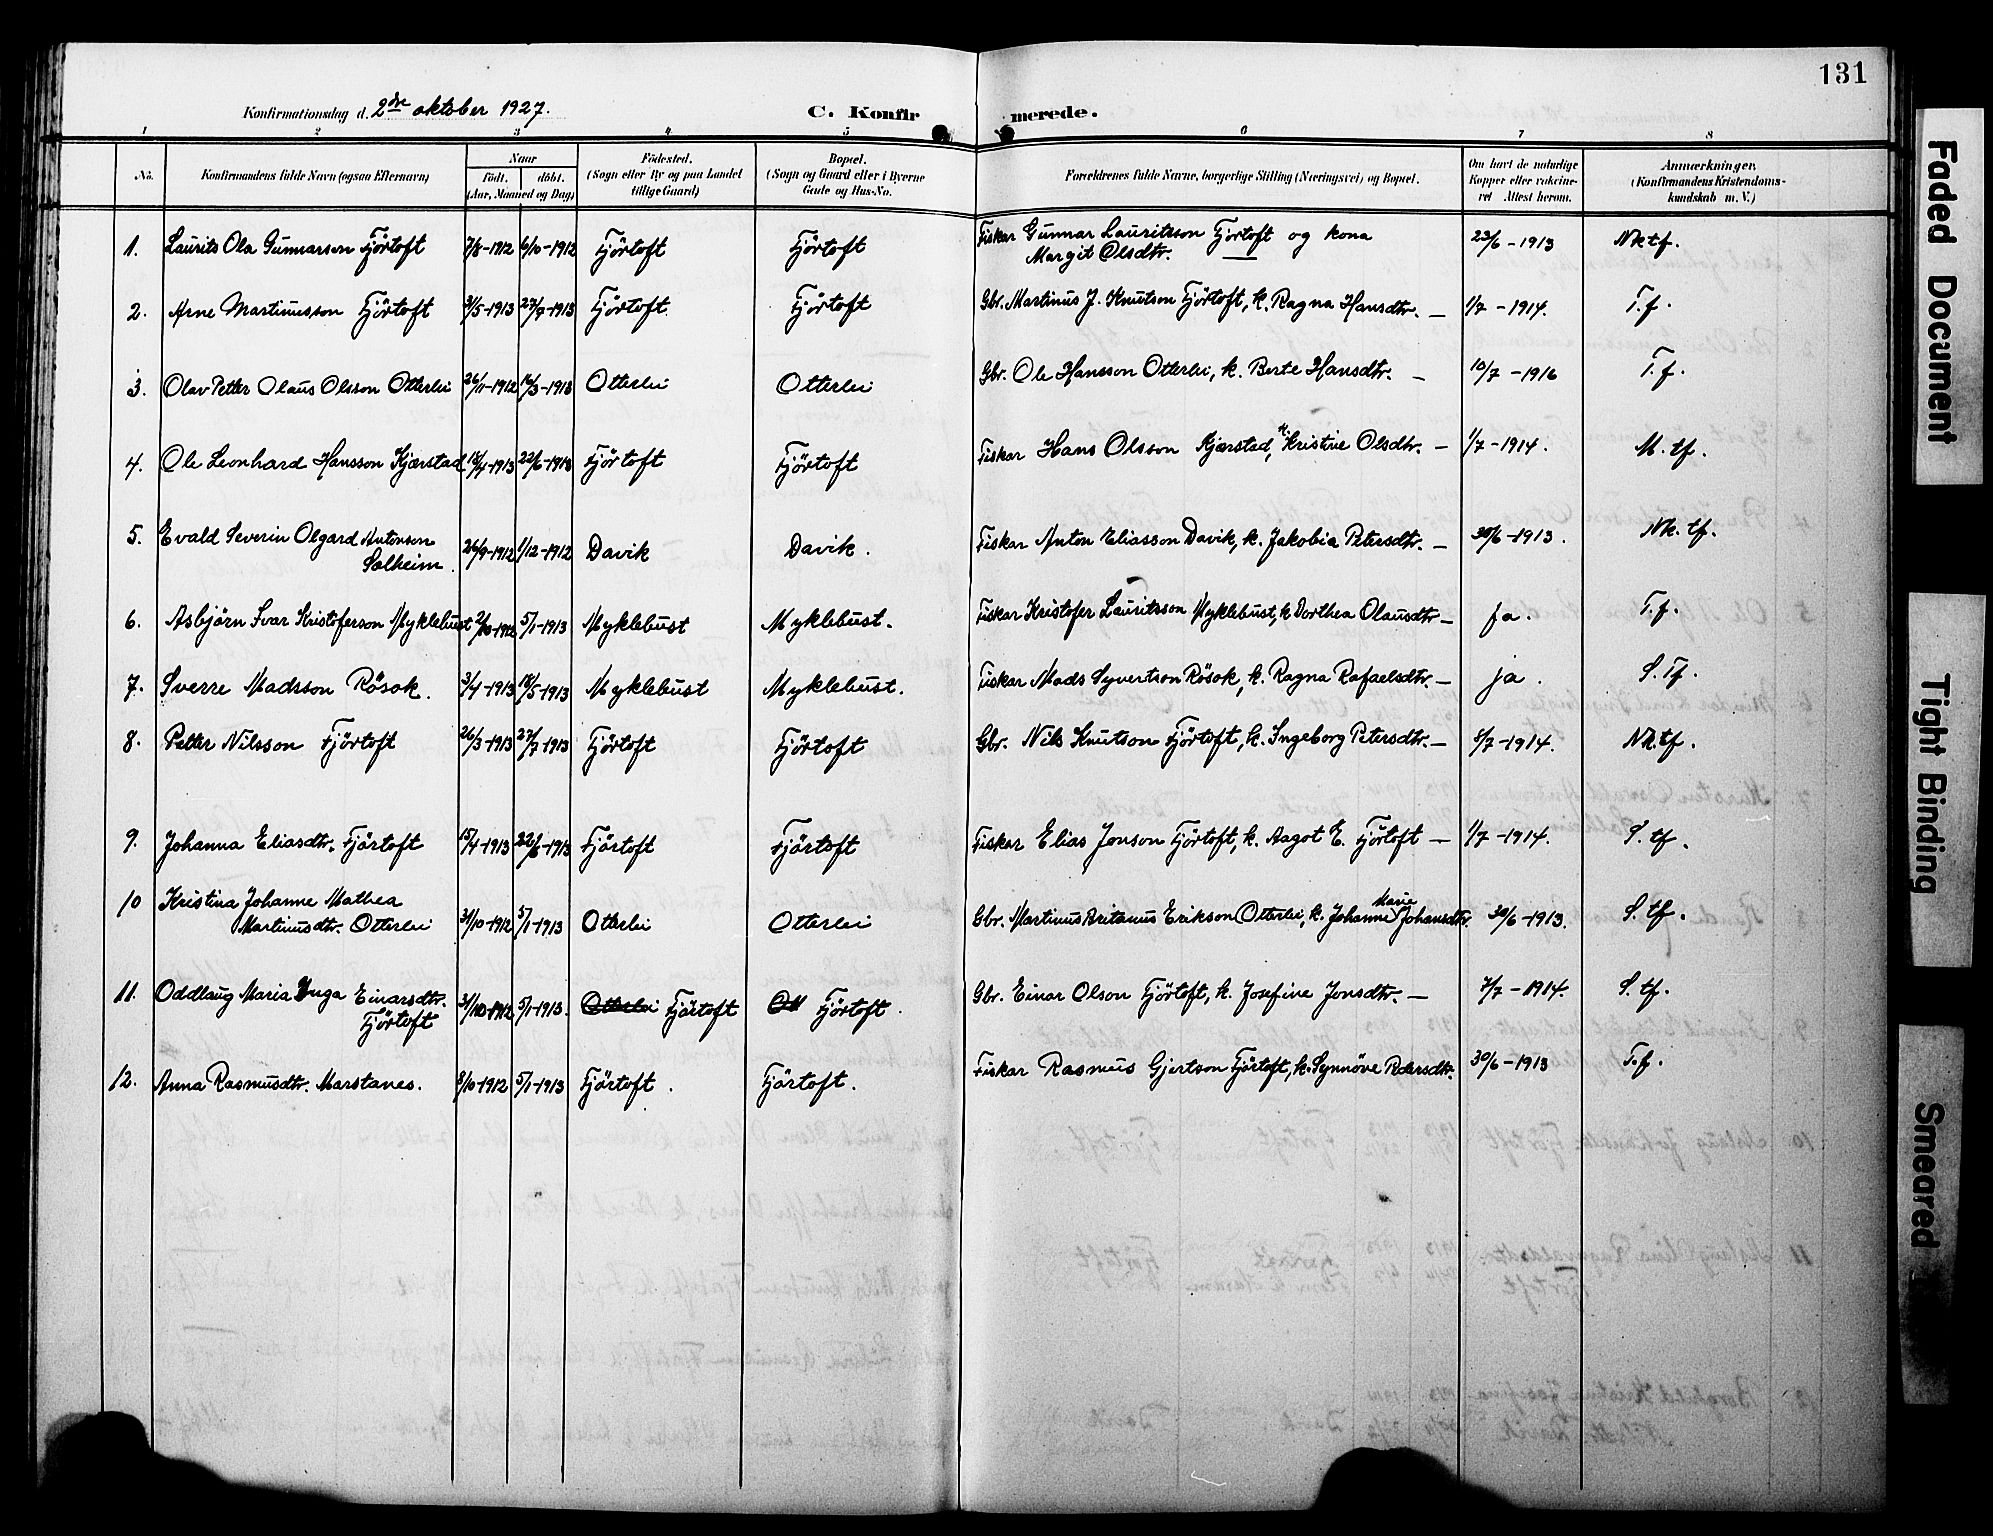 131
Konfirmationsdag d. 2dre oktober 1927.
C. Konfirmerede.
1 2 3 4 5 6 7 8
No. Konfirmandens fulde Navn (ogsaa Efternavn) Naar født. døbt. (Aar, Maaned og Dag) Fødested. (Sogn eller By og paa Landet tillige Gaard) Bopæl. (Sogn og Gaard eller i Byerne Gade og Hus-No. Forældrenes fulde Navne, borgerlige Stilling (Næringsvei) og Bopæl. Om havt de naturlige Kopper eller vakcineret Attest herom. Anmærkninger. (Konfirmandens Kristendomskundskab m. V.)
1. Laurits Ola Gunnarson Fjörtoft 7/8-1912 6/10-1912 Fjörtoft Fjörtoft Fiskar Gunnar Lauritsson Fjörtoft og kona 23/6-1913 Mktf.
Margit Olsdtr. —
2. Arne Martinusson Fjörtoft 3/5-1913 27/7-1913 Fjörtoft Fjörtoft Gbr. Martinus J. Knutson Fjörtoft, k. Ragna Hansdtr. — 1/7-1914. T.f.
3. Olav Petter Olaus Olsson Otterlei 26/11-1912 16/3-1913 Otterlei Otterlei Gbr. Ole Hansson Otterlei, k. Berte Hansdtr. — 10/7-1916 T.f.
4. Ole Leonhard Hansson Kjærstad 18/4-1913 22/6-1913 Fjörtoft Fjörtoft Fiskar Hans Olsson Kjærstad, k. Kristine Olsdtr. — 1/7-1914. M.tf.
5. Evald Severin Olgard Antonson
Solheim. 26/9-1912 1/12-1912 Davik Davik. Fiskar Anton Eliasson Davik, k. Jakobia Petersdtr. — 30/6-1913. Mk.tf.
6. Asbjörn Ivar Kristoferson Myklebust 2/10-1912 5/1-1913 Myklebust Myklebust. Fiskar Kristofer Lauritsson Myklebust, k Dorthea Olausdtr — ja. T.f.
7. Sverre Madsson Rösok. 3/4-1913 18/5-1913 Myklebust Myklebust. Fiskar Mads Syvertson Rösok, k. Ragna Rafaelsdtr. — ja. S.Tf.
8. Petter Nilsson Fjörtoft 26/3-1913 27/7-1913 Fjörtoft Fjörtoft Gbr. Nils Knutson Fjörtoft, k. Ingeborg Petersdtr. — 1/7-1914. Mk.tf.
9. Johanna Eliasdtr. Fjörtoft 15/4-1913 22/6-1913 Fjörtoft Fjörtoft Fiskar Elias Jonson Fjörtoft, k. Aagot E. Fjörtoft — 1/7-1914. S.tf.
10 Kristina Johanne Mathea
Martinusdtr. Otterlei 31/10-1912 5/1-1913 Otterlei Otterlei Gbr. Martinus Britanus Erikson Otterlei, k. Johanne Marie Johansdtr. 30/6-1913. S.tf.
11. Oddlaug Maria Inga Einarsdtr.
Fjörtoft 31/10-1912 5/1-1913. Otterlei Fjörtoft Ott Fjörtoft. Gbr. Einar Olson Fjörtoft, k. Josefine Jonsdtr. — 7/7-1914. S.tf.
12. Anna Rasmusdtr. Marstanes. 8/10-1912 5/1-1913 Fjörtoft. Fjörtoft. Fiskar Rasmus Gjertson Fjörtoft, k. Synnöve Pedersdtr. 30/6-1913 T.f.
Faded Document
Tight Binding
Smeared